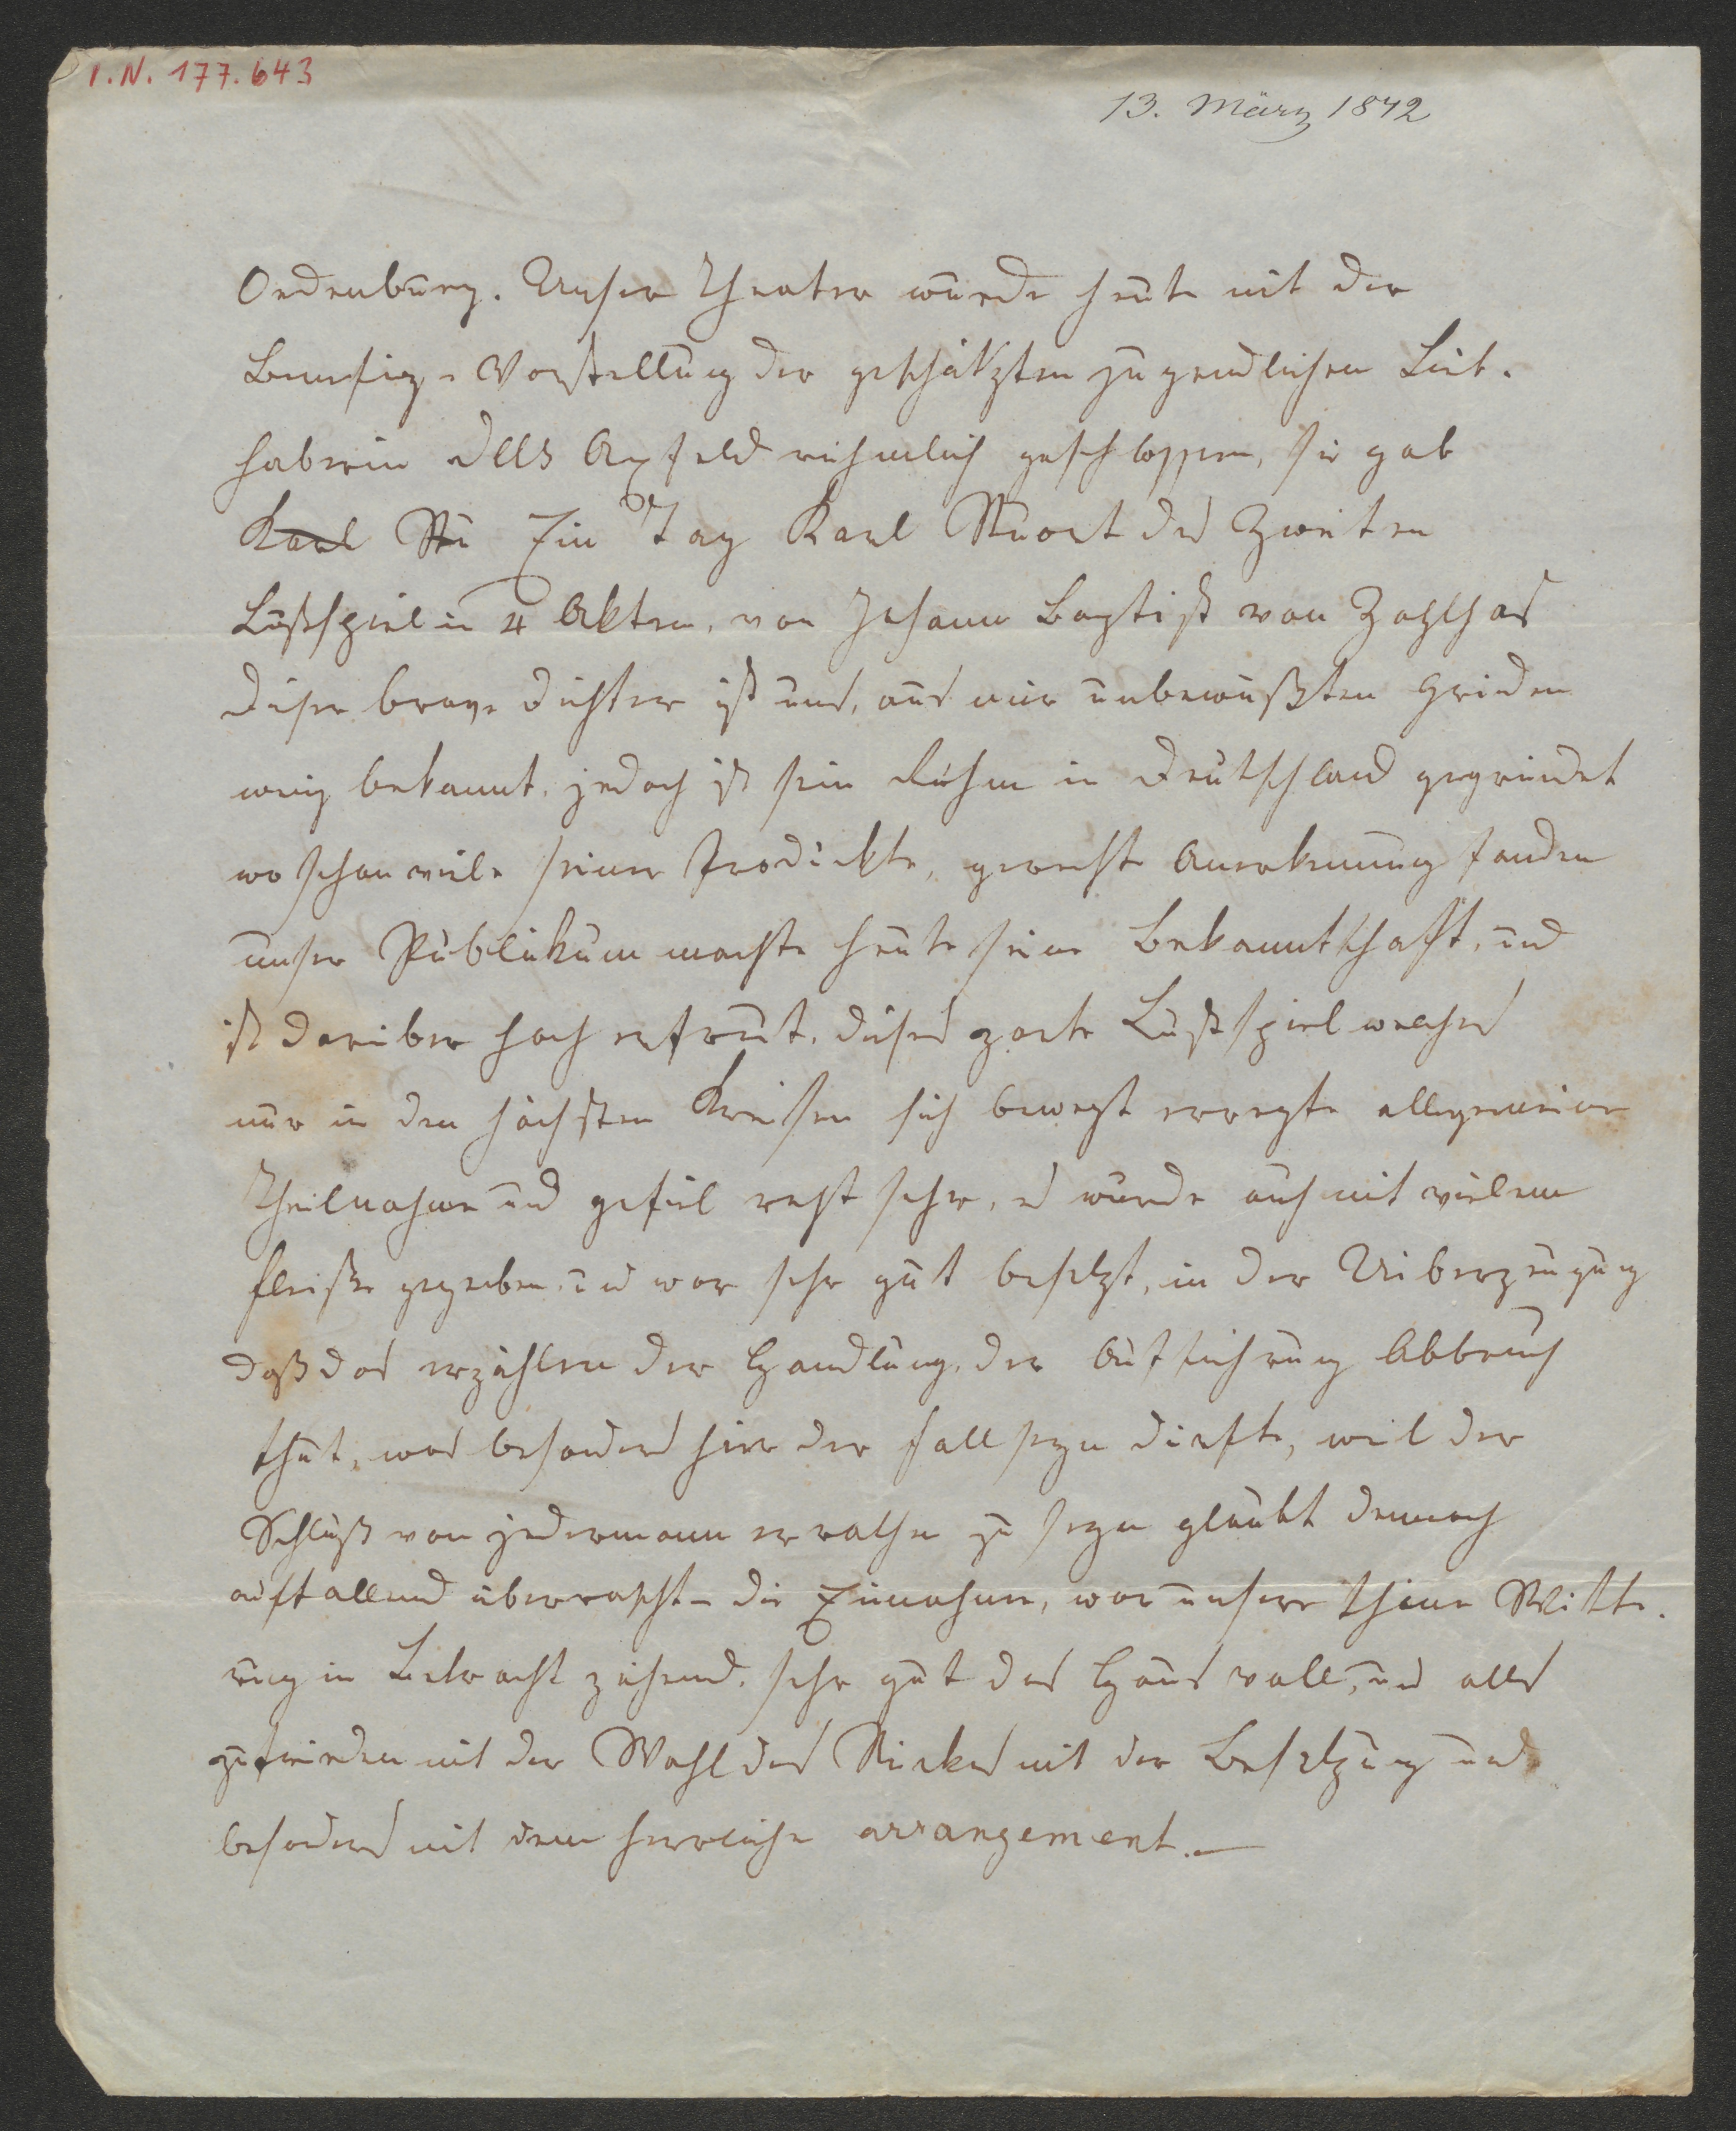 I.N. 177.643
13. März 1842
Oedenburg. Unser Theater wurde heute mit der
Benefiz-Vorstellung der geschätzten jugendlichen Lieb-
haberin Dlle Axfeld rühmlich geschlossen, sie gab
Karl Stu Ein Tag Karl Stuart des Zweiten
Lustspiel in 4 Akten, von Johann Baptist von Zahlhas
Dieser brave Dichter ist uns, aus mir unbewußten Gründen
wenig bekannt, jedoch ist sein Ruhm in Deutschland gegründet
wo schon viele seiner Produckte, gerechte Anerkennung fanden
unser Publikum machte heute seine Bekanntschaft, und
ist darüber hoch erfreut, dieses zarte Lustspiel welches
nur in den höchsten Kreisen sich bewegt erregte allgemeine
Theilnahme und gefiel recht sehr, es wurde auch mit vielem
Fleiße gegeben, und war sehr gut besetzt, in der Uiberzeugung
daß das erzählen der Handlung, der Aufführung Abbruch
thut, was besonders hier der Fall seyn dürfte, weil der
Schluß von jedermann errathen zu seyn glaubt dennoch
auffallend überrascht – die Einnahme, war unsere Witte-
rung in Betracht ziehend, sehr gut das Haus voll, und alles
zufrieden mit der Wahl des Stückes mit der Besetzung und
besonders mit dem herrlichen arrangement. –